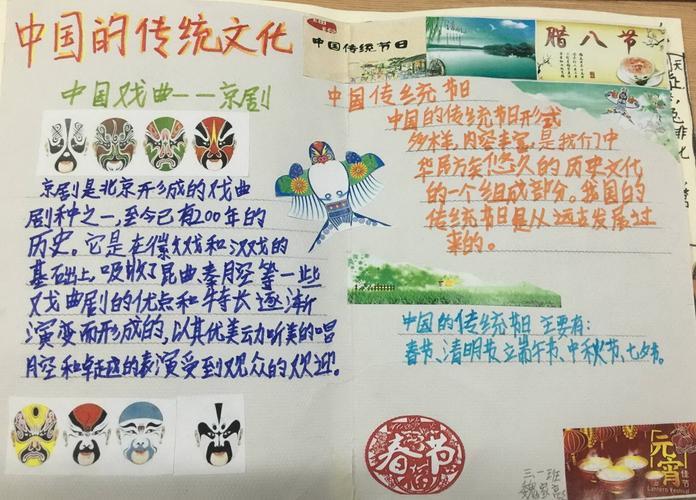 中国的传统文化
中国戏曲——京剧
京剧是北京形成的戏曲
剧种之一,至今已有200年的
历史。它是在徽戏和汉戏的
基础上,吸收了昆曲秦腔等一些
戏曲剧的优点和特长逐渐
演变而形成的,以其优美动听美的唱
腔和卓越的表演受到观众的欢迎。
中国传统节日
腊八节
中国传统节日
中国的传统节日形式
多样,内容丰富,是我们中
华民族悠久的历史文化
的一个组成部分。我国的
传统节日是从远古发展过
来的。
中国的传统节日主要有:
春节、清明节、端午节、中秋节、七夕节。
春节
三、一班
元宵
佳节
Lantern Festival